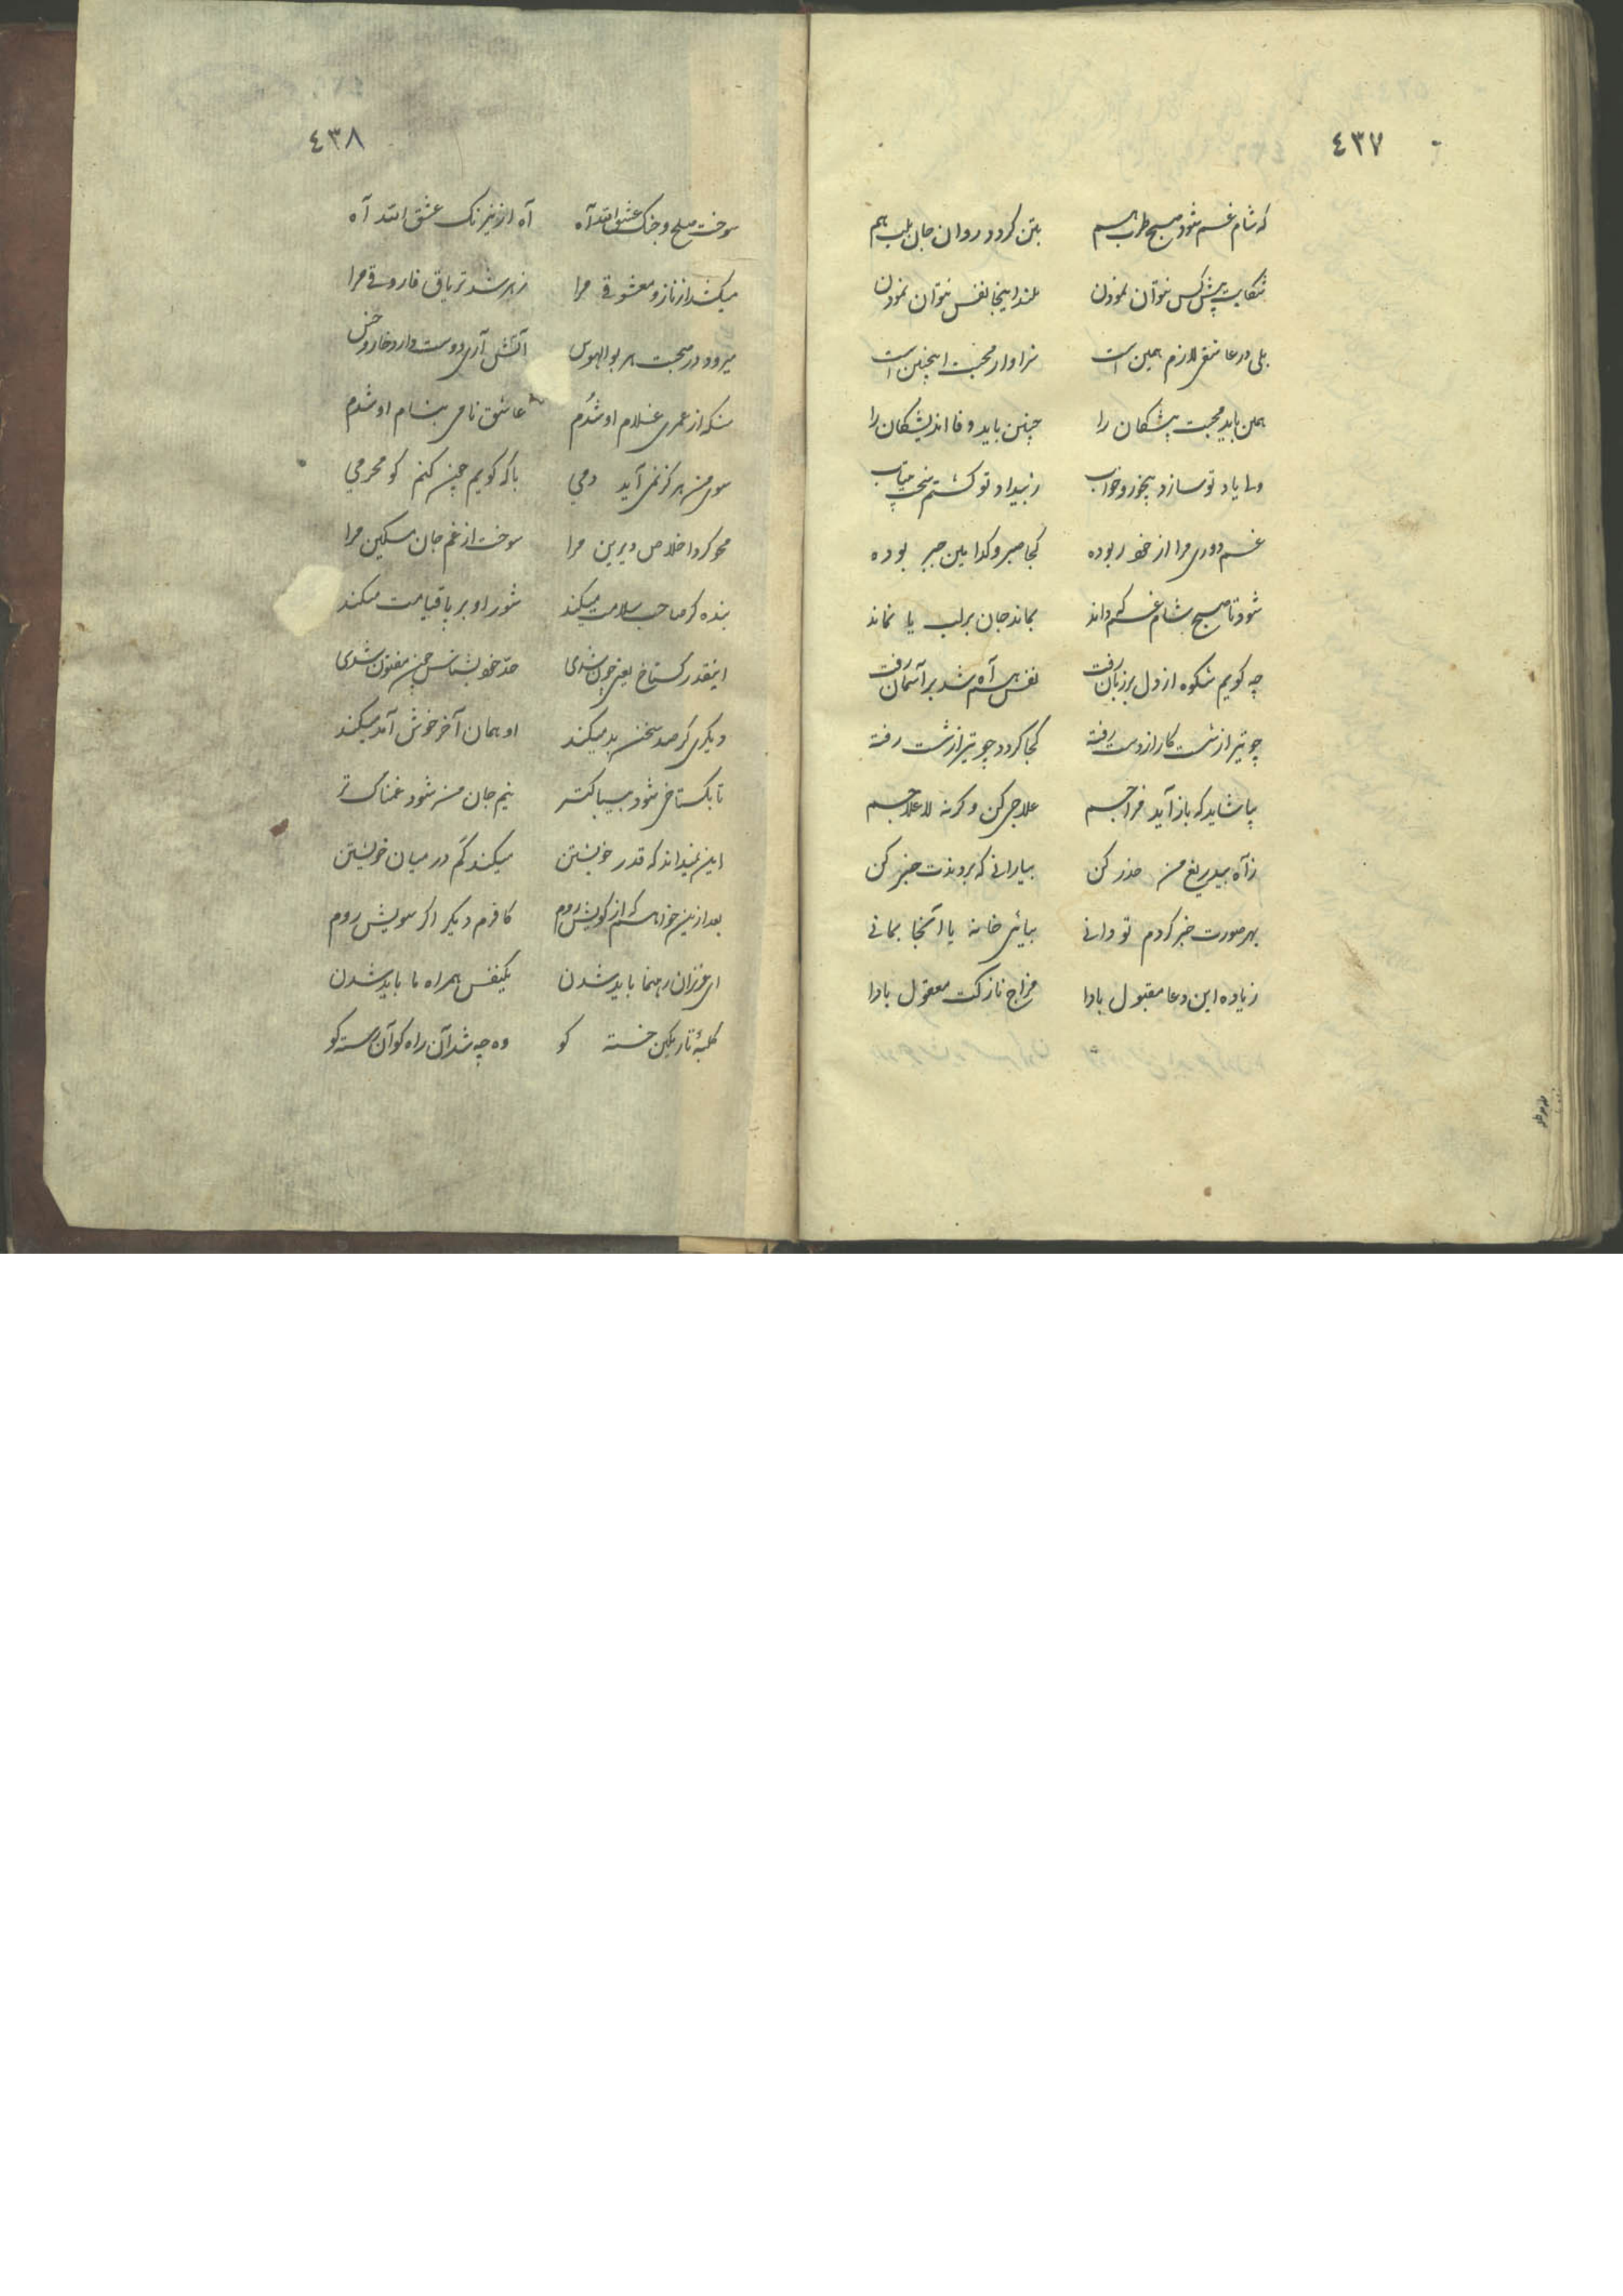 ٤٣٧
که شام غم شود صبح طرب هم بتن گردد روان جان بلب هم
شکایت پیش کس نتوان نمودن بلند اینجا نفس نتوان نمودن
بلی در عاشقی لازم همین است سزاوار محبت اینچنین است
همین باید محبت پیشکان را چنین باید وفا اندیشکان را
ولی یاد تو سازد بیخور و خواب ز بیداد تو کشتم سخت بیتاب
غم دوری مرا از خود ربوده کجا صبر و کدامین جبر بوده
شود تا صبح شام غم که داند بماند جان برلب یا نماند
چه کویم شکوه از دل بر زبان رفت نفس هم آه شد بر آسمان رفت
چو تیر از شست کار از دست رفته کجا کردد چو تیر از شست رفته
بیا شاید که باز آید مزاجم علاجی کن وکرنه لاعلاجم
ز آه بیدریغ من حذر کن بیارانی که بردندت خبر کن
بهر صورت خبر کردم تو دانی بیائی خانه یا آنجا بمانی
زیاده این دعا مقبول بادا مزاج نازکت معقول بادا
٤٣٨
سوخت صلح و جنک عشق الله آه آه از نیرنک عشق الله آه
میکشد از ناز و معشوقی مرا زهر شد تریاق فاروقی مرا
میرود در صحبت هر بوالهوس آتش آری دوست دارد خار و خس
منکه از عمری غلام او شدم عاشق نامی بنام او شدم
سوی من هرکز نمی آید دمی با که کویم چین کنم کو محرمی
محو کرد اخلاص دیرین مرا سوخت از غم جان مسکین مرا
بنده کر صاحب سلامت میکند شور او بر پا قیامت میکند
اینقدر کستاخ یعنی چون شدی حد خود بشناس چین مفتون شدی
دیکری کر صد سخن بد میکند او همان آخر خوش آمد میکند
تا بکستاخی شود بیباکتر نیم جان من شود غمناک تر
این نمیداند که قدر خویشتن میکند کم در میان خویشتن
بعد ازین خواهم که از کویش روم کافرم دیکر اکر سویش روم
ای عزیزان رهنما باید شدن یکنفس همراه ما باید شدن
کلبهٔ تاریک من خسته کو وه چه شد آن راه کو آن رسته کو